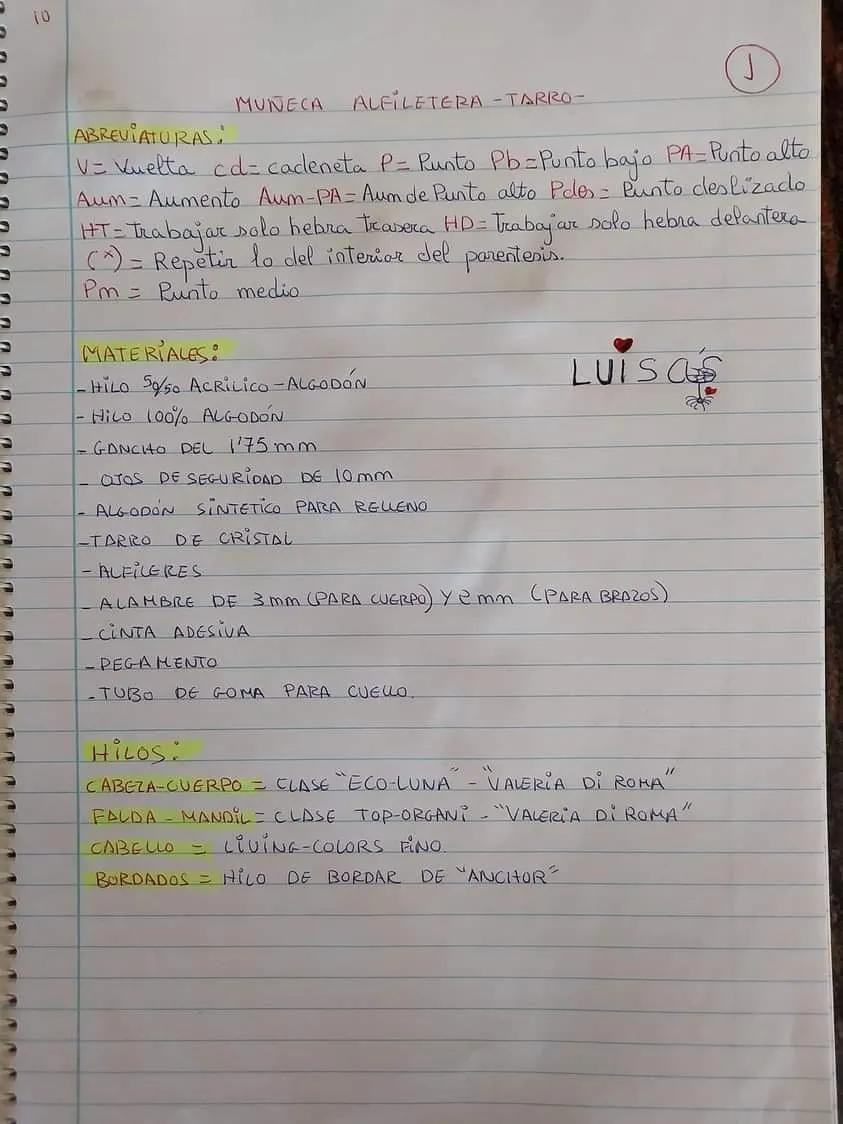 10
1
MUÑECA ALFILETERA - TARRO -
ABREVIATURAS:
V= Vuelta cd= cadeneta P= Punto Pb= Punto bajo PA= Punto alto
Aum= Aumento Aum-PA= Aum de Punto alto Pdes= Punto deslizado
HT= Trabajar solo hebra trasera HD= Trabajar solo hebra delantera
(*) = Repetir lo del interior del parentesis.
Pm = Punto medio
MATERIALES:
- HILO 50/50 ACRILICO - ALGODÓN
- HILO 100% ALGODÓN
- GANCHO DEL 1'75 mm
- OJOS DE SEGURIDAD DE 10 mm
- ALGODÓN SINTETICO PARA RELLENO
- TARRO DE CRISTAL
- ALFILERES
- ALAMBRE DE 3 mm (PARA CUERPO) Y 2 mm (PARA BRAZOS)
- CINTA ADESIVA
- PEGAMENTO
- TUBO DE GOMA PARA CUELLO.
LUIS
HILOS:
CABEZA-CUERPO = CLASE "ECO-LUNA" - "VALERIA DI ROMA"
FALDA - MANDIL = CLASE TOP-ORGANI - "VALERIA DI ROMA"
CABELLO = LIVING-COLORS FINO.
BORDADOS = HILO DE BORDAR DE "ANCHOR"